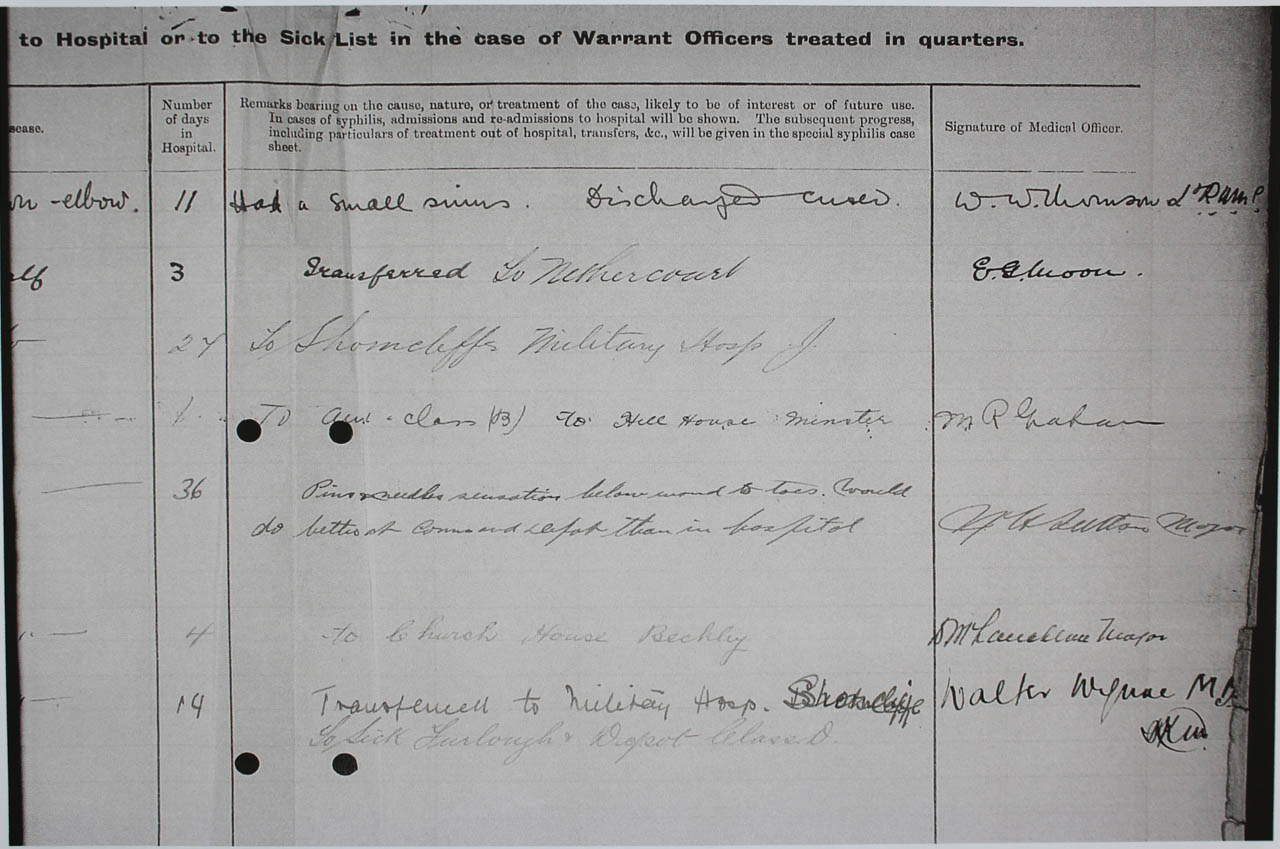 to Hospital or to the Sick List in the case of Warrant Officers treated in quarters.
sease.
Number
of days
in
Hospital.
Remarks bearing on the cause, nature, or treatment of the case, likely to be of interest or of future use.
In cases of syphilis, admissions and re-admissions to hospital will be shown. The subsequent progress,
including particulars of treatment out of hospital, transfers, &c., will be given in the special syphilis case
sheet.
Signature of Medical Officer.
on -elbow. 11 Had a small sinus. Discharged cured. W. W. Thomson Lt RAMC
alf 3 Transferred To Nethercourt E.G. Moon.
27 To Shorncliffe Military Hosp J.
1 To aux - class (B) to Hill House Minster M R Graham
36 Pins & needles sensation below wound to toes. Would
do better at Command Depot than in hospital H Sutton Major
4 to Church House Beckley Major
14 Transferred to Military Hosp. Shorncliffe Walter Wynne M.B.
To Sick Furlough & Depot Class D.